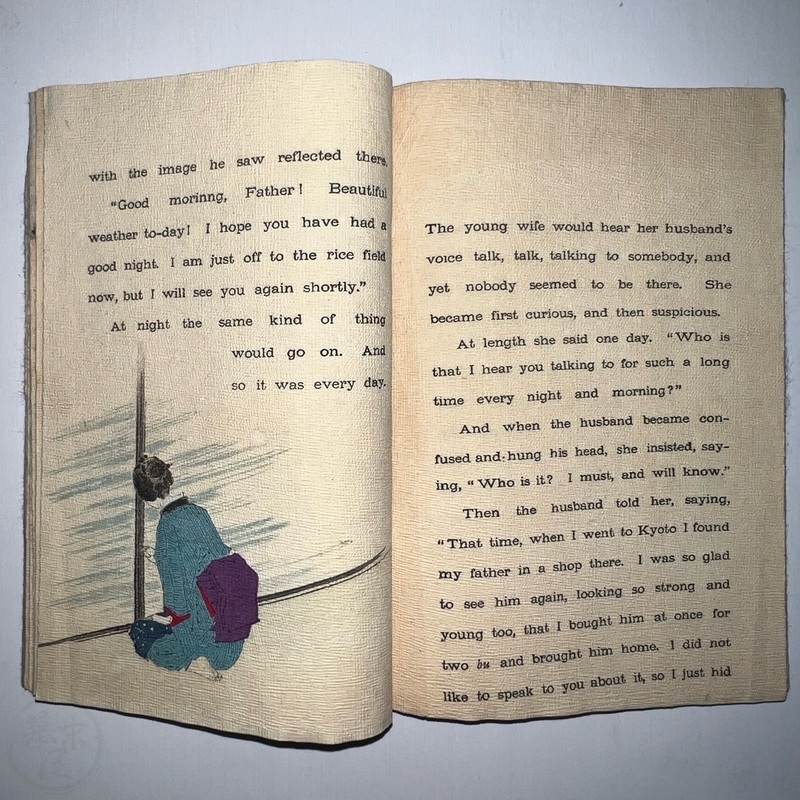 with the image he saw reflected there.
"Good morinng, Father! Beautiful
weather to-day! I hope you have had a
good night. I am just off to the rice field
now, but I will see you again shortly."
At night the same kind of thing
would go on. And
so it was every day.
The young wife would hear her husband's
voice talk, talk, talking to somebody, and
yet nobody seemed to be there. She
became first curious, and then suspicious.
At length she said one day. "Who is
that I hear you talking to for such a long
time every night and morning?"
And when the husband became con-
fused and hung his head, she insisted, say-
ing, "Who is it? I must, and will know."
Then the husband told her, saying,
"That time, when I went to Kyoto I found
my father in a shop there. I was so glad
to see him again, looking so strong and
young too, that I bought him at once for
two bu and brought him home. I did not
like to speak to you about it, so I just hid